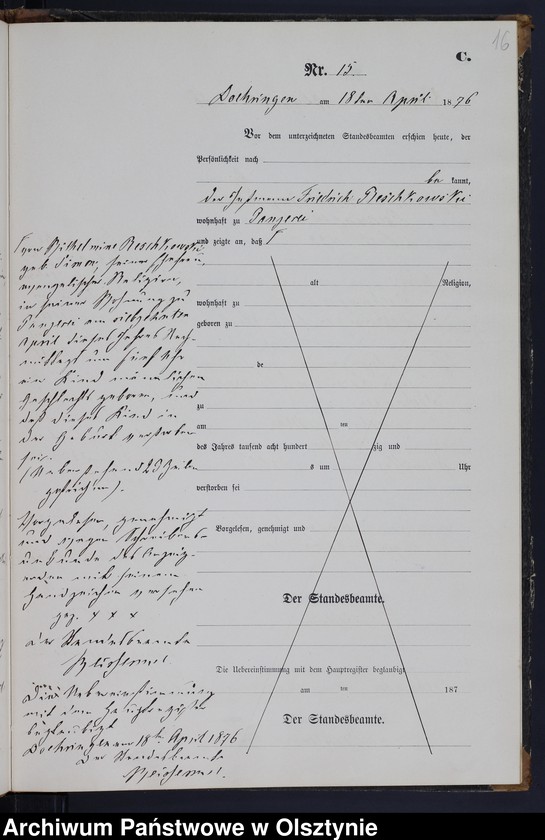 16
C.
Nr. 15
Doehringen am 18ten April 1876
Vor dem unterzeichneten Standesbeamten erschien heute, der
Persönlichkeit nach
be kannt,
der Friedrich Reschkowski
wohnhaft zu Panzerei
und zeigte an, daß
Frau Wilhelmine Reschkowski
geb Simon, seiner Ehefrau,
evangelischer Religion,
in seiner Wohnung zu
Panzerei am siebzehnten
April dieses Jahres Nach-
mittags um fünf Uhr
ein Kind männlichen
Geschlechts geboren, und
daß dieses Kind in
der Geburt verstorben
sei.
(Vorstehend 23 Zeilen
gestrichen).
Vorgelesen, genehmigt
und wegen Schreibens-
unkunde des Anzeig-
enden mit seinem
Handzeichen versehen
gez. x x x
der Standesbeamte
alt Religion,
wohnhaft zu
geboren zu
de
zu
am ten
des Jahres tausend acht hundert zig und
s um Uhr
verstorben sei
Vorgelesen, genehmigt und
Der Standesbeamte.
Die Uebereinstimmung mit dem Hauptregister beglaubigt
am ten 187
Der Standesbeamte.
Die Uebereinstimmung
mit dem Hauptregister
beglaubigt
Doehringen am 18t. April 1876
Der Standesbeamte
Archiwum Państwowe w Olsztynie